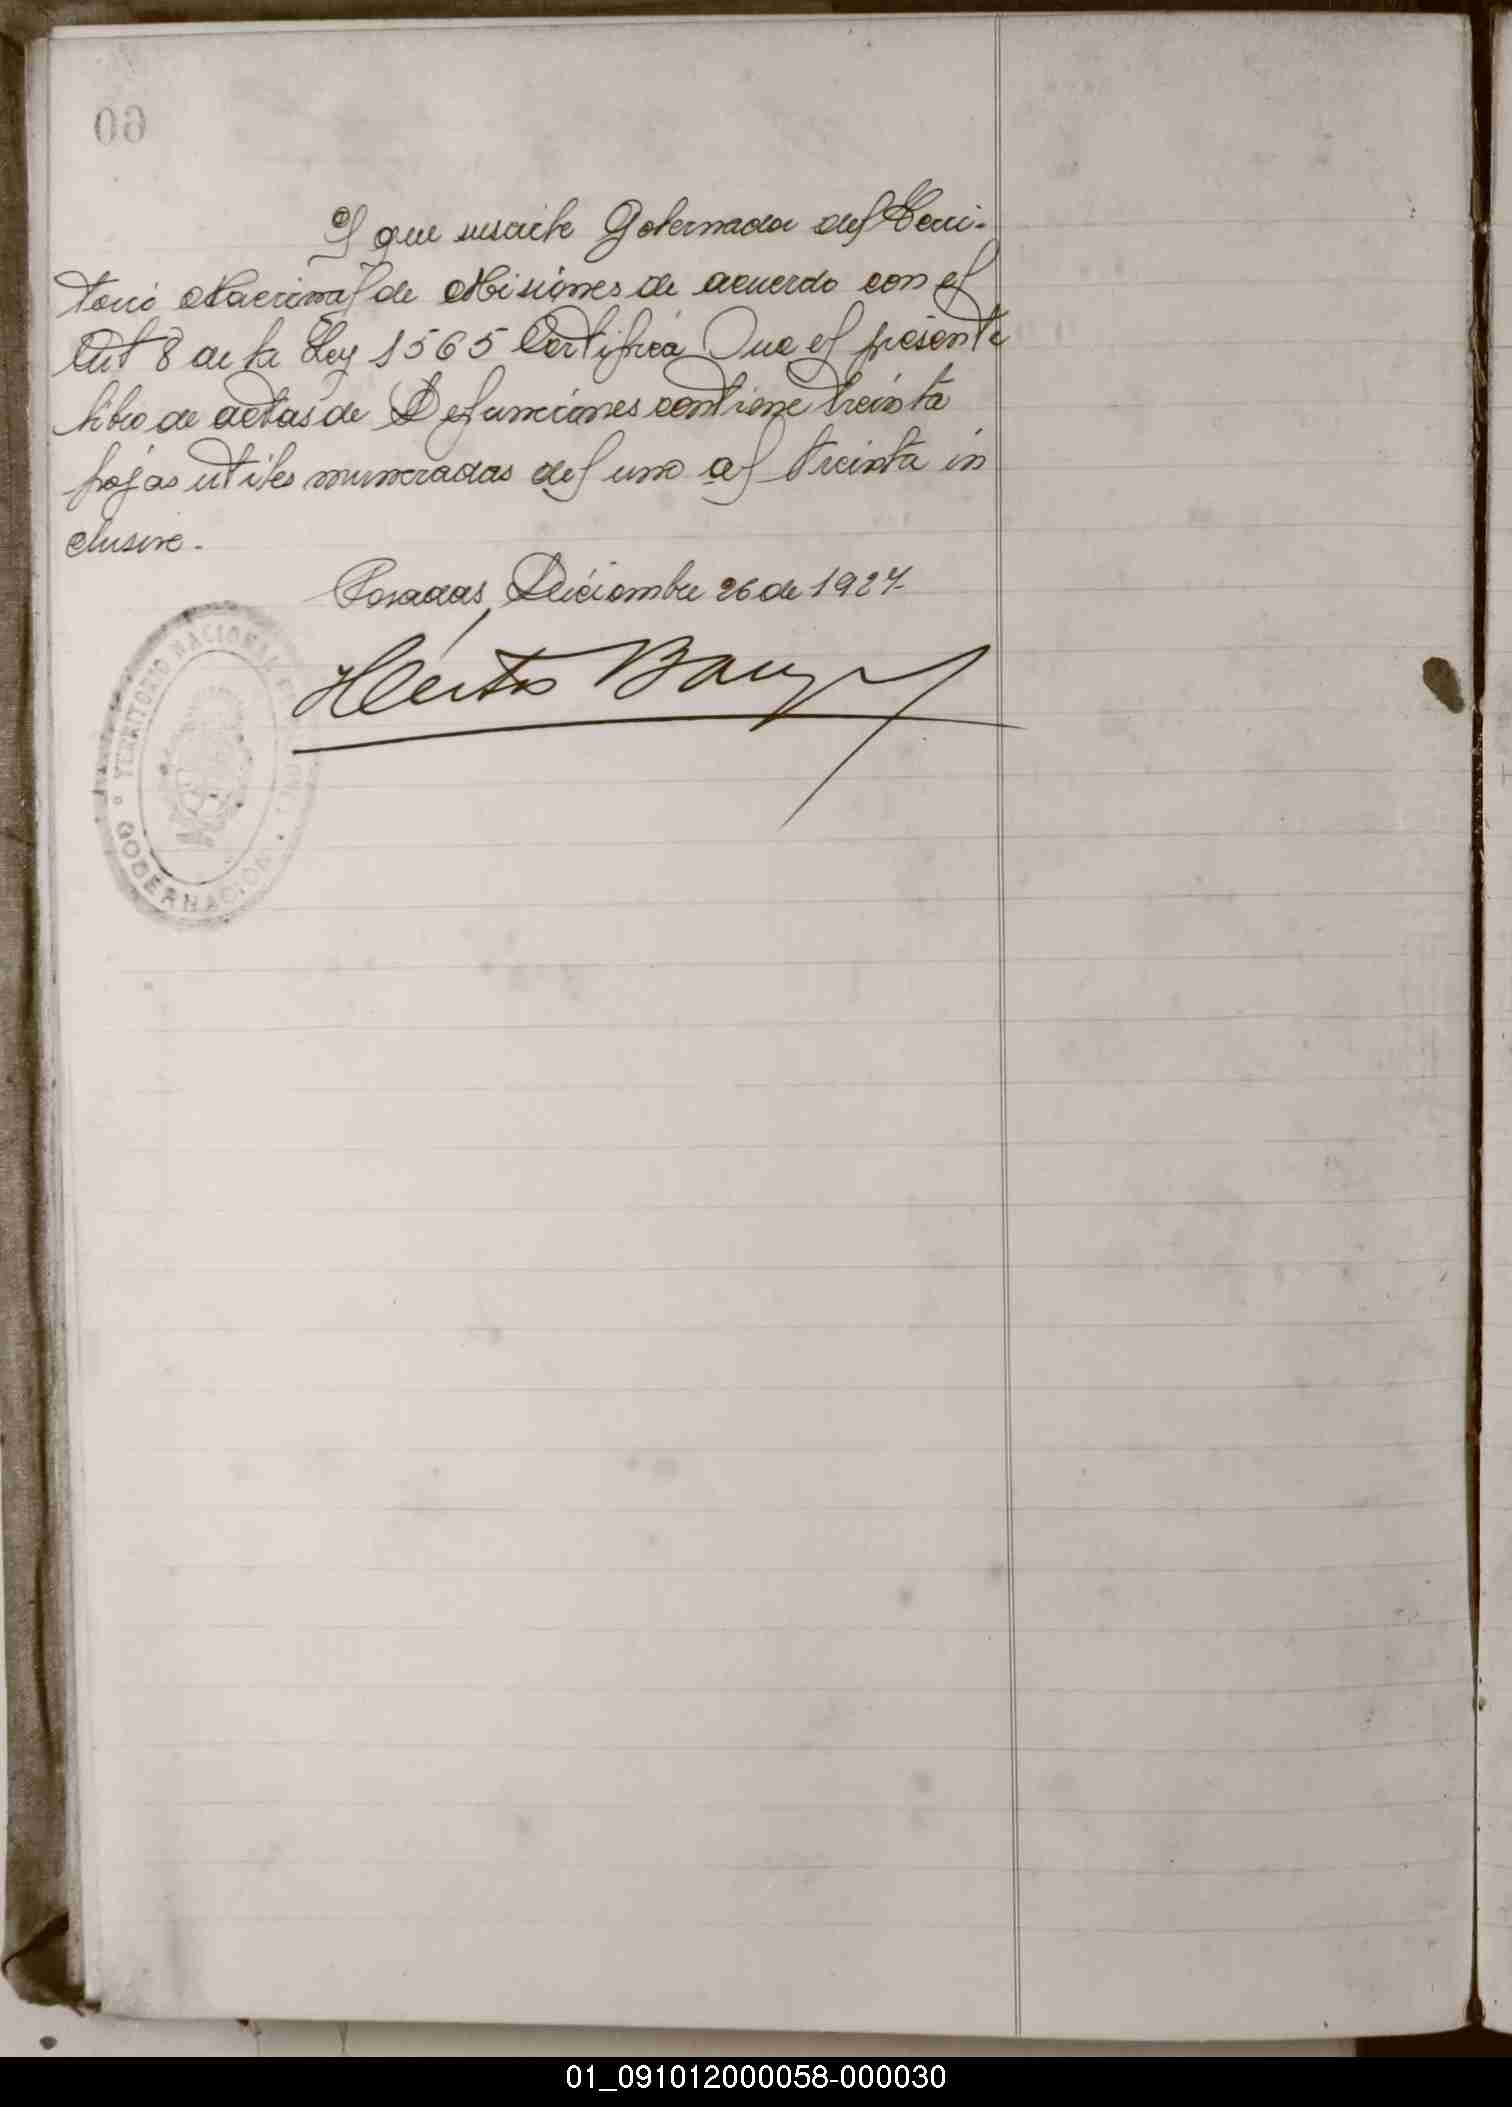 El que suscribe Gobernador del Terri-
torio Nacional de Misiones de acuerdo con el
Art 8 de la Ley 1565 Certifica Que el presente
libro de actas de Defunciones contiene treinta
fojas utiles numeradas del uno al treinta in
clusive.-
Posadas, Diciembre 26 de 1927-
Héctor
TERRITORIO NACIONAL
GOBERNACION
01_091012000058-000030